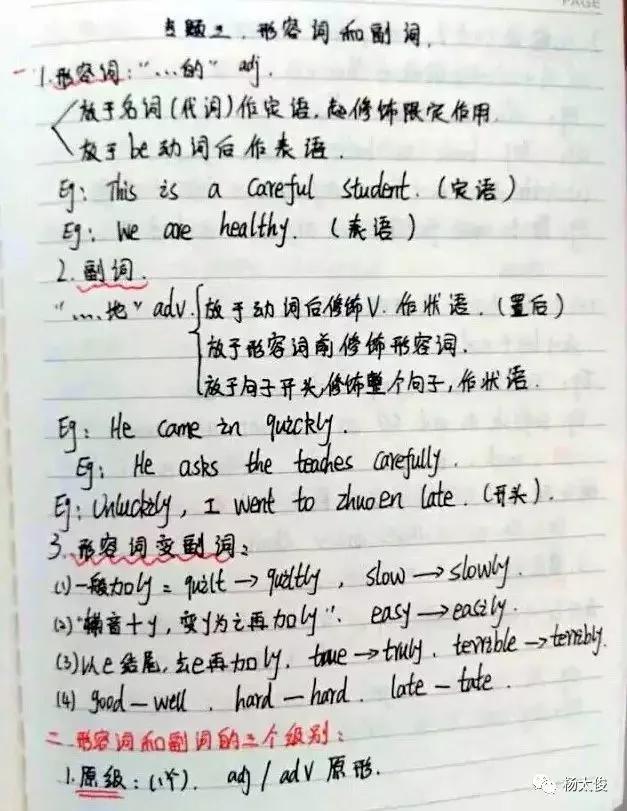 PAGE
专题二、形容词和副词.
一 1.形容词:“...的” adj.
放于名词(代词)作定语,起修饰限定作用.
放于be动词后作表语.
Eg: This is a careful student. (定语)
Eg: We are healthy. (表语)
2.副词.
“....地” adv.放于动词后修饰V.作状语.(置后)
放于形容词前修饰形容词.
放于句子开头,修饰整个句子,作状语.
Eg: He came in quickly.
Eg: He asks the teaches carefully.
Eg: Unluckily, I went to zhuoen late. (开头).
3.形容词变副词:
(1)一般加ly = quilt → quiltly, slow → slowly.
(2)“辅音+y,变y为i再加ly”. easy → easily.
(3)以e结尾,去e再加ly. true → truly. terrible → terribly.
(4) good — well. hard — hard. late — tate.
二.形容词和副词的三个级别:
1.原级:(1个). adj / adv 原形.
杨太俊